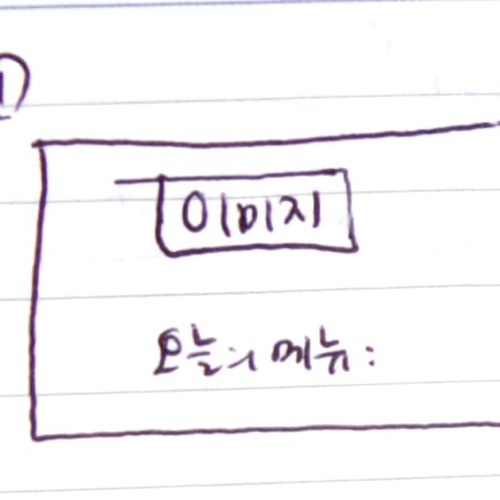 ①
이미지
오늘의 메뉴: